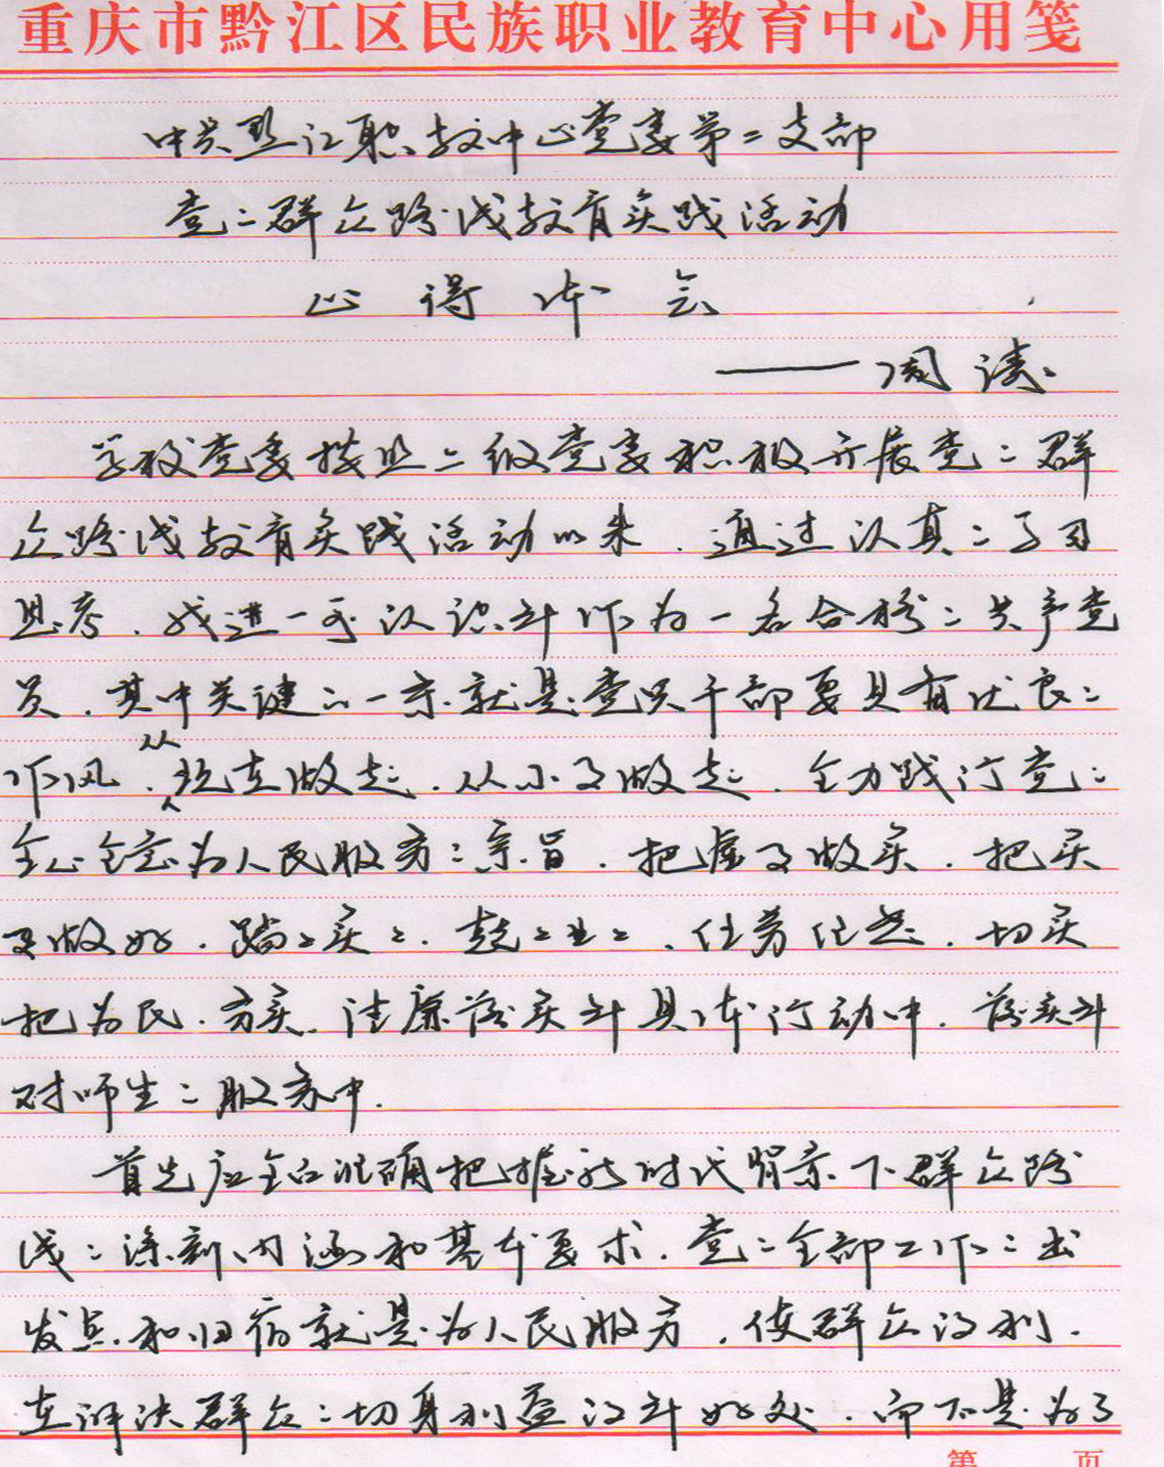 重庆市黔江区民族职业教育中心用笺
中共黔江职教中心党委第二支部
党的群众路线教育实践活动
心得体会
——周
学校党委按照上级党委积极开展党的群
众路线教育实践活动以来，通过认真的学习
思考，我进一步认识到作为一名合格的共产党
员，其中关键的一条就是党员干部要具有优良的
作风，从现在做起，从小事做起，全力践行党的
全心全意为人民服务的宗旨，把虚事做实，把实
事做好，踏踏实实，兢兢业业，任劳任怨，切实
把为民、务实、清廉落实到具体行动中，落实到
对师生的服务中。
首先应全面准确把握新时代背景下群众路
线的深刻内涵和基本要求，党的全部工作的出
发点和归宿就是为人民服务，使群众得利，
在解决群众的切身利益得到好处，而不是为了
第 页